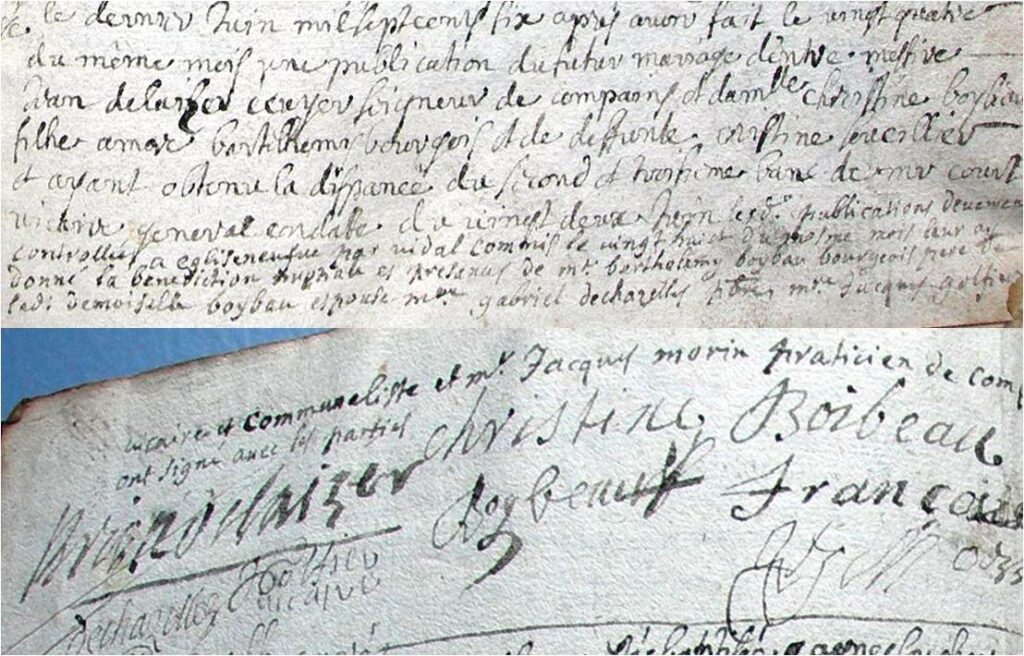 le dernier Juin mil sept cens six apres avoir fait le vingt quatre
du même mois une publication du futur mariage dentre messire
Jean delaizer écuyer seigneur de compains et dam.lle christine boybau
filhe a m.re barthelemy bourgois et de deffunte cristine
et ayant obtenu la dispance du second et troisiéme banc de m.r court
vicaire general en date du vingt deux Juin lesd. publications deuemen
controllées a egliseneufve par vidal commis le vingt huict du mesme mois leur ay
donné la benediction nuptiale es presences de m.re barthelemy boybau bourgeois pere de
lad. demoiselle boybau espouse m.re gabriel dechazelles p.bre m.re Jacques golfier
vicaire et communeliste et m.r Jacques morin praticien de comp
ont signe avec les parties
christine Boibeau
delaizer
Boybeau
Francois
Dechazelles
Golfier
vicaire